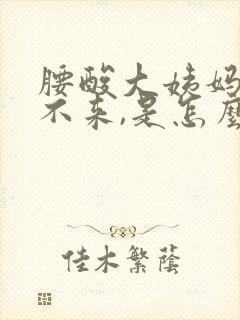 腰酸大姨妈
不来,是怎麼
佳木繁蔭